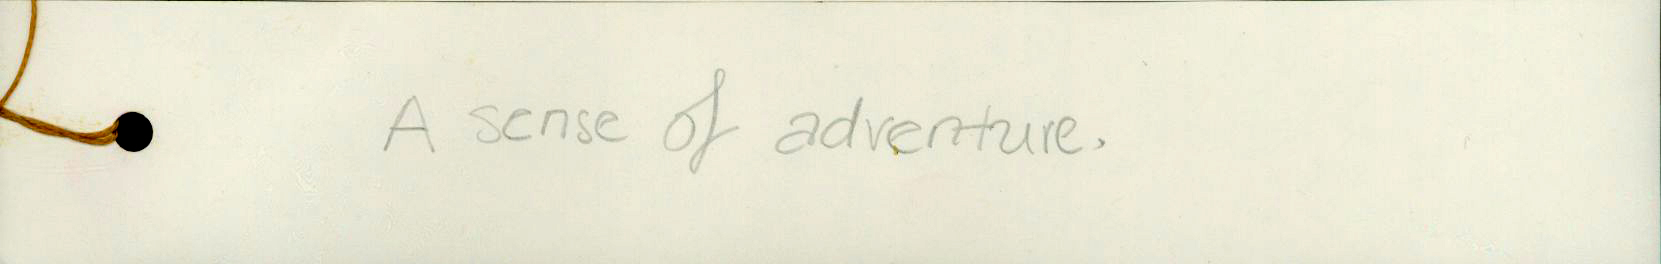 A sense of adventure.